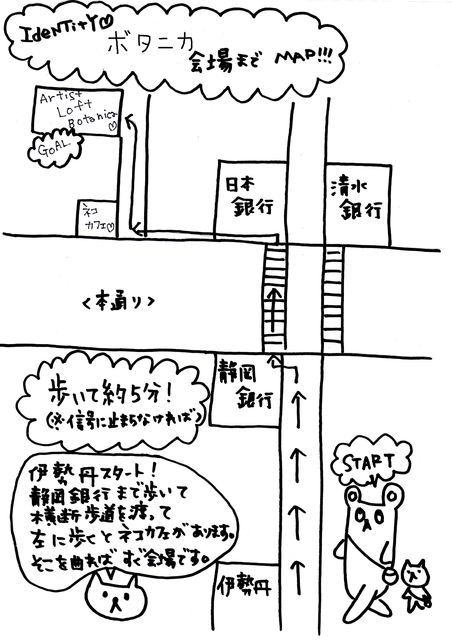 IdeNTitY♡
ボタニカ
会場まで MAP!!!
Artist
Loft
Botanica
♡
GOAL
ネコ
カフェ♡
日本
銀行
清水
銀行
<本通り>
静岡
銀行
歩いて約5分!
(※信号に止まらなければ)
START
伊勢丹スタート!
静岡銀行まで歩いて
横断歩道を渡って
左に歩くとネコカフェがあります。
そこを曲ればすぐ会場です。
伊勢丹